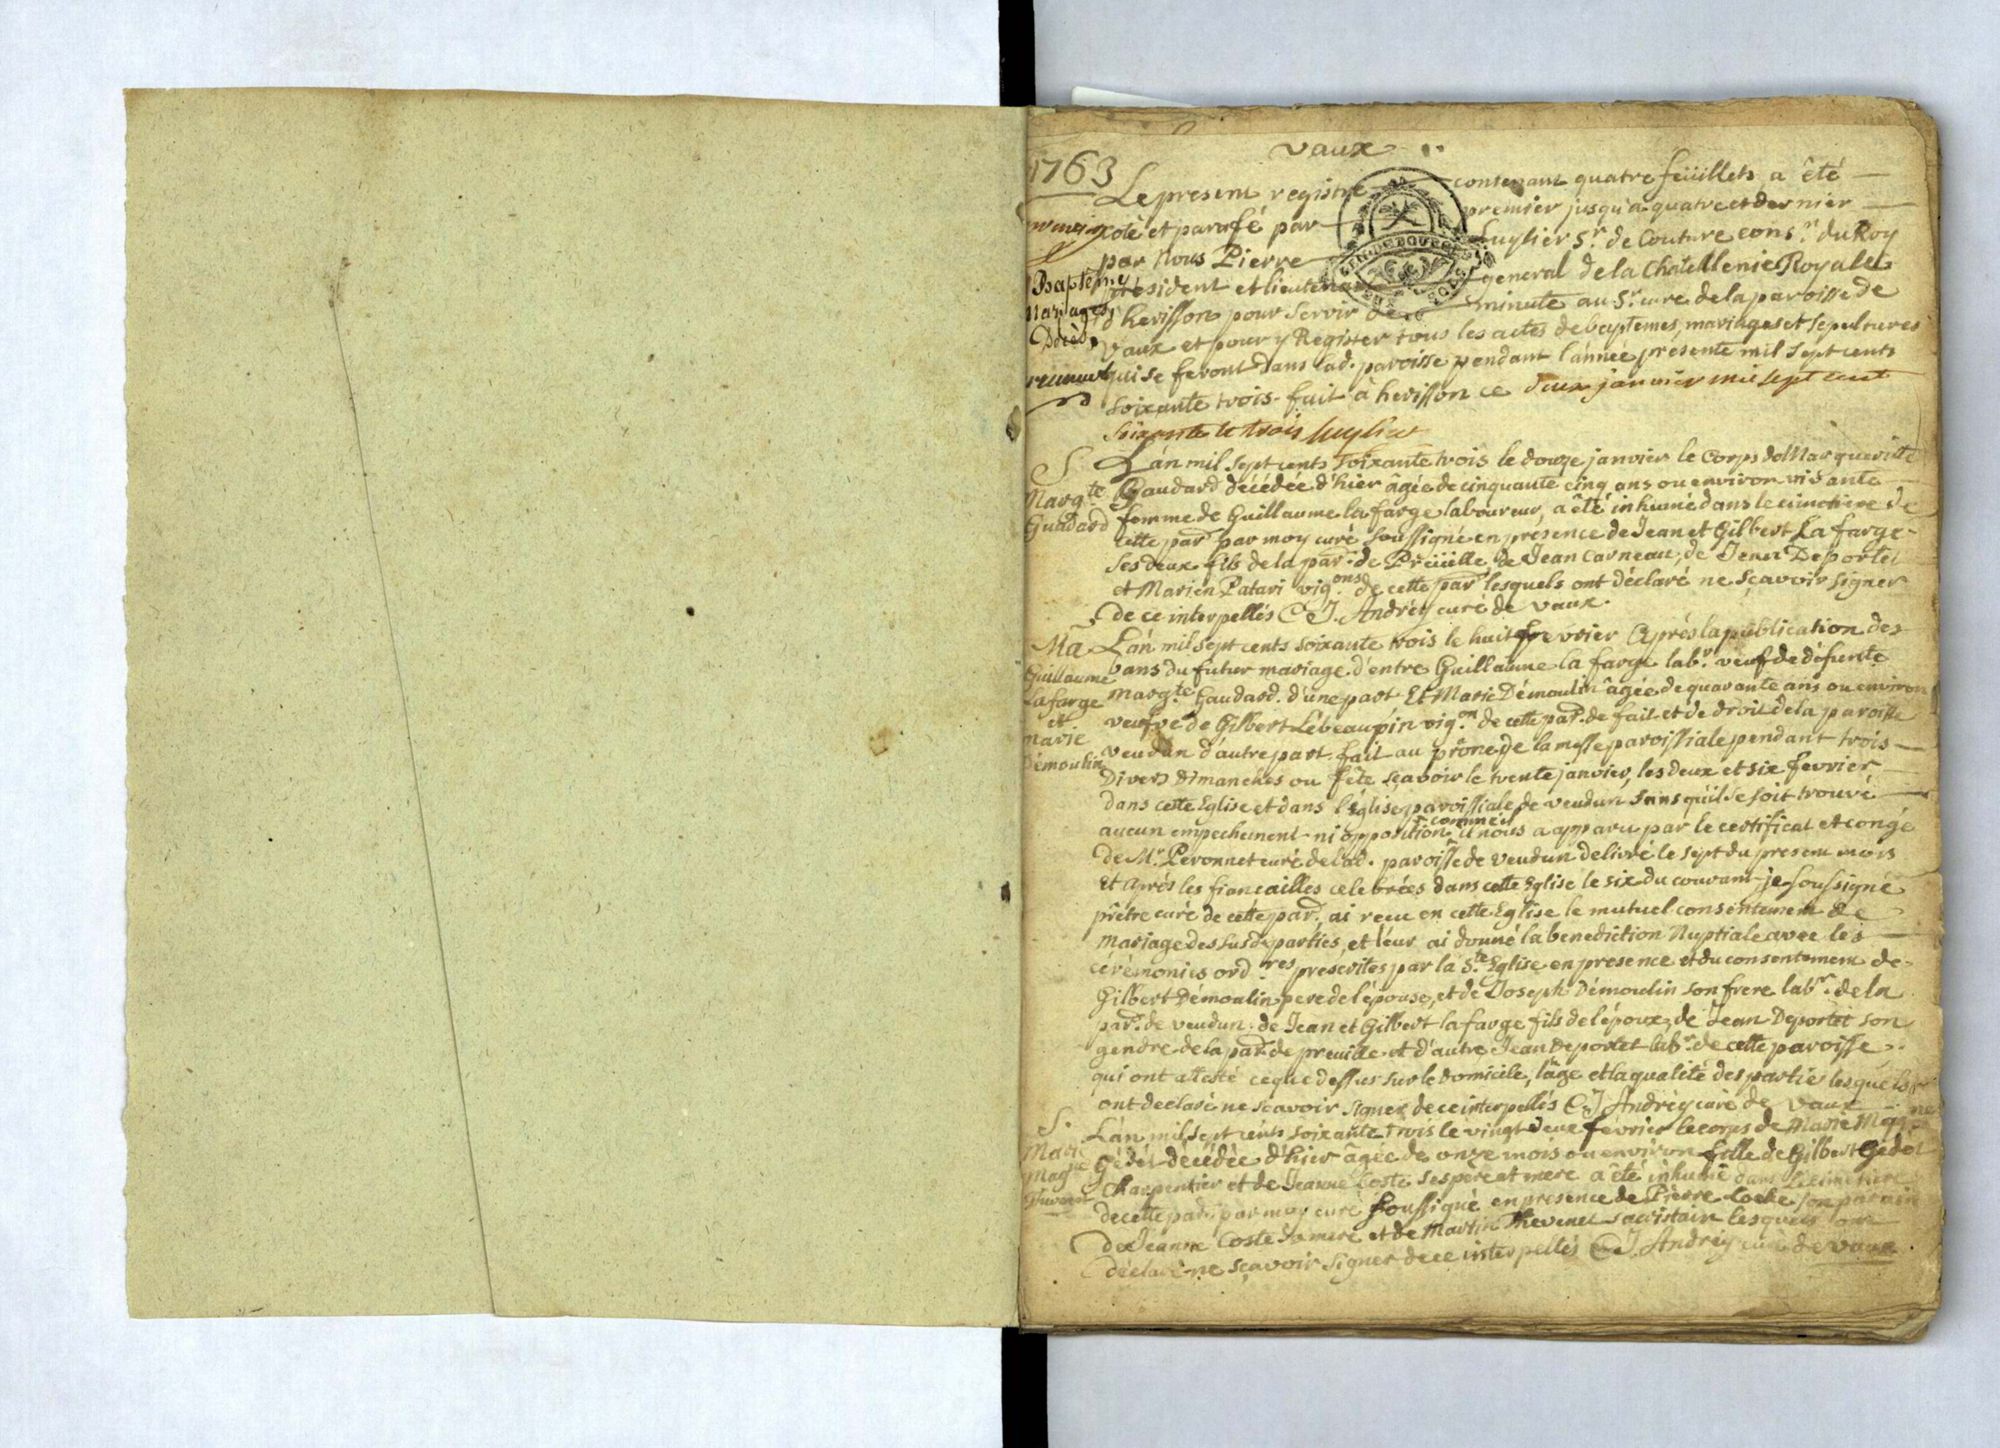 vaux
1763
Le present registre contenant quatre feüillets a êté
premier
cotè et parafé par premier jusqu'a quatre et dernier
par Nous Pierre Luylier Sr. de Couture cons.r du Roy
Baptêmes
président et lieutenant general de la Chatellenie Royalle
Mariages
d'herisson pour servir de minute au Sr. cure de la paroisse de
Décès
vaux et pour y Register tous les actes de baptemes, mariages et sepultures
qui se feront dans lad. paroisse pendant l'année présente mil sept cents
soixante trois. fait à herisson ce deux janvier mil sept cent
soixante et trois Luylier
S
Marg.te
Gaudard
L'án mil sept cents soixante trois le douze janvier le corps de Margueritte
Gaudard décédée d'hier âgée de cinquante cinq ans ou environ vivante
femme de Guillaume la farge laboureur, a êté inhumé dans le cimetiere de
cette par. par moy curé soussigné en présence de Jean et Gilbert La farge
ses deux fils de la par. de Preüille de Jean Carneau, de Jean Deportet
et Marien Patari vig.ons de cette par. lesquels ont déclaré ne sçavoir signer
de ce interpellés C. J. Andrey curé de vaux.
Ma
Guillaume
Lafarge
et
marie
Démoulin
L'án mil sept cents soixante trois le huit fevrier Après la publication des
bans du futur mariage d'entre Guillaume la farge lab.r veuf de défunte
Marg.te Gaudard. d'une part Et Marie Démoulin âgée de quarante ans ou environ
veufve de Gilbert Lebeaupin vig.on de cette par. de fait et de droit de la paroisse
veudun d'autre part. fait au prône de la messe paroissiale pendant trois
divers dimanches ou fête sçavoir le trente janvier, les deux et six fevrier
dans cette Eglise et dans l'église paroissiale de veudun sans qu'il se soit trouvé
aucun empechement ni opposition comme il nous a apparu par le certificat et congé
de Mr. Peronnet curé de lad. paroisse de veudun delivré le sept du present mois
Et aprés les fiancailles celebrées dans cette Eglise le six du courant je soussigné
prêtre curé de cette par. ai recu en cette Eglise le mutuel consentement de
mariage des susd. parties, et leur ai donné la benediction Nuptiale avec les
cérémonies ord.res préscrites par la S.te Eglise en presence et du consentement de
Gilbert Démoulin pere de l'épouse, et de Joseph Démoulin son frere lab.r de la
par. de veudun. de Jean et Gilbert la farge fils de l'époux, de Jean Deportet son
gendre de la par. de preuille et d'autre Jean Deportet lab.r de cette paroisse
qui ont attesté ce que dessus sur le domicile, l'âge et la qualité des partie lesquels
ont declaré ne sçavoir signer de ce interpellés C. J. Andrey curé de vaux
S.
Marie
Mag.ne
L'án mil sept cents soixante trois le vingt deux fevrier le corps de Marie Mag.ne
Gédel decédée d'hier âgée de onze mois ou environ fille de Gilbert Gédel
Charpentier et de Jeanne Coste ses pere et mere a êté inhumé dans le cimetiere
de cette par. par moy curé soussigné en presence de Pierre Coste son parain
de Jeanne Coste sa mere et de Martin Thevenet sacristain lesquels ont
déclaré ne sçavoir signer de ce interpellés C. J. Andrey curé de vaux